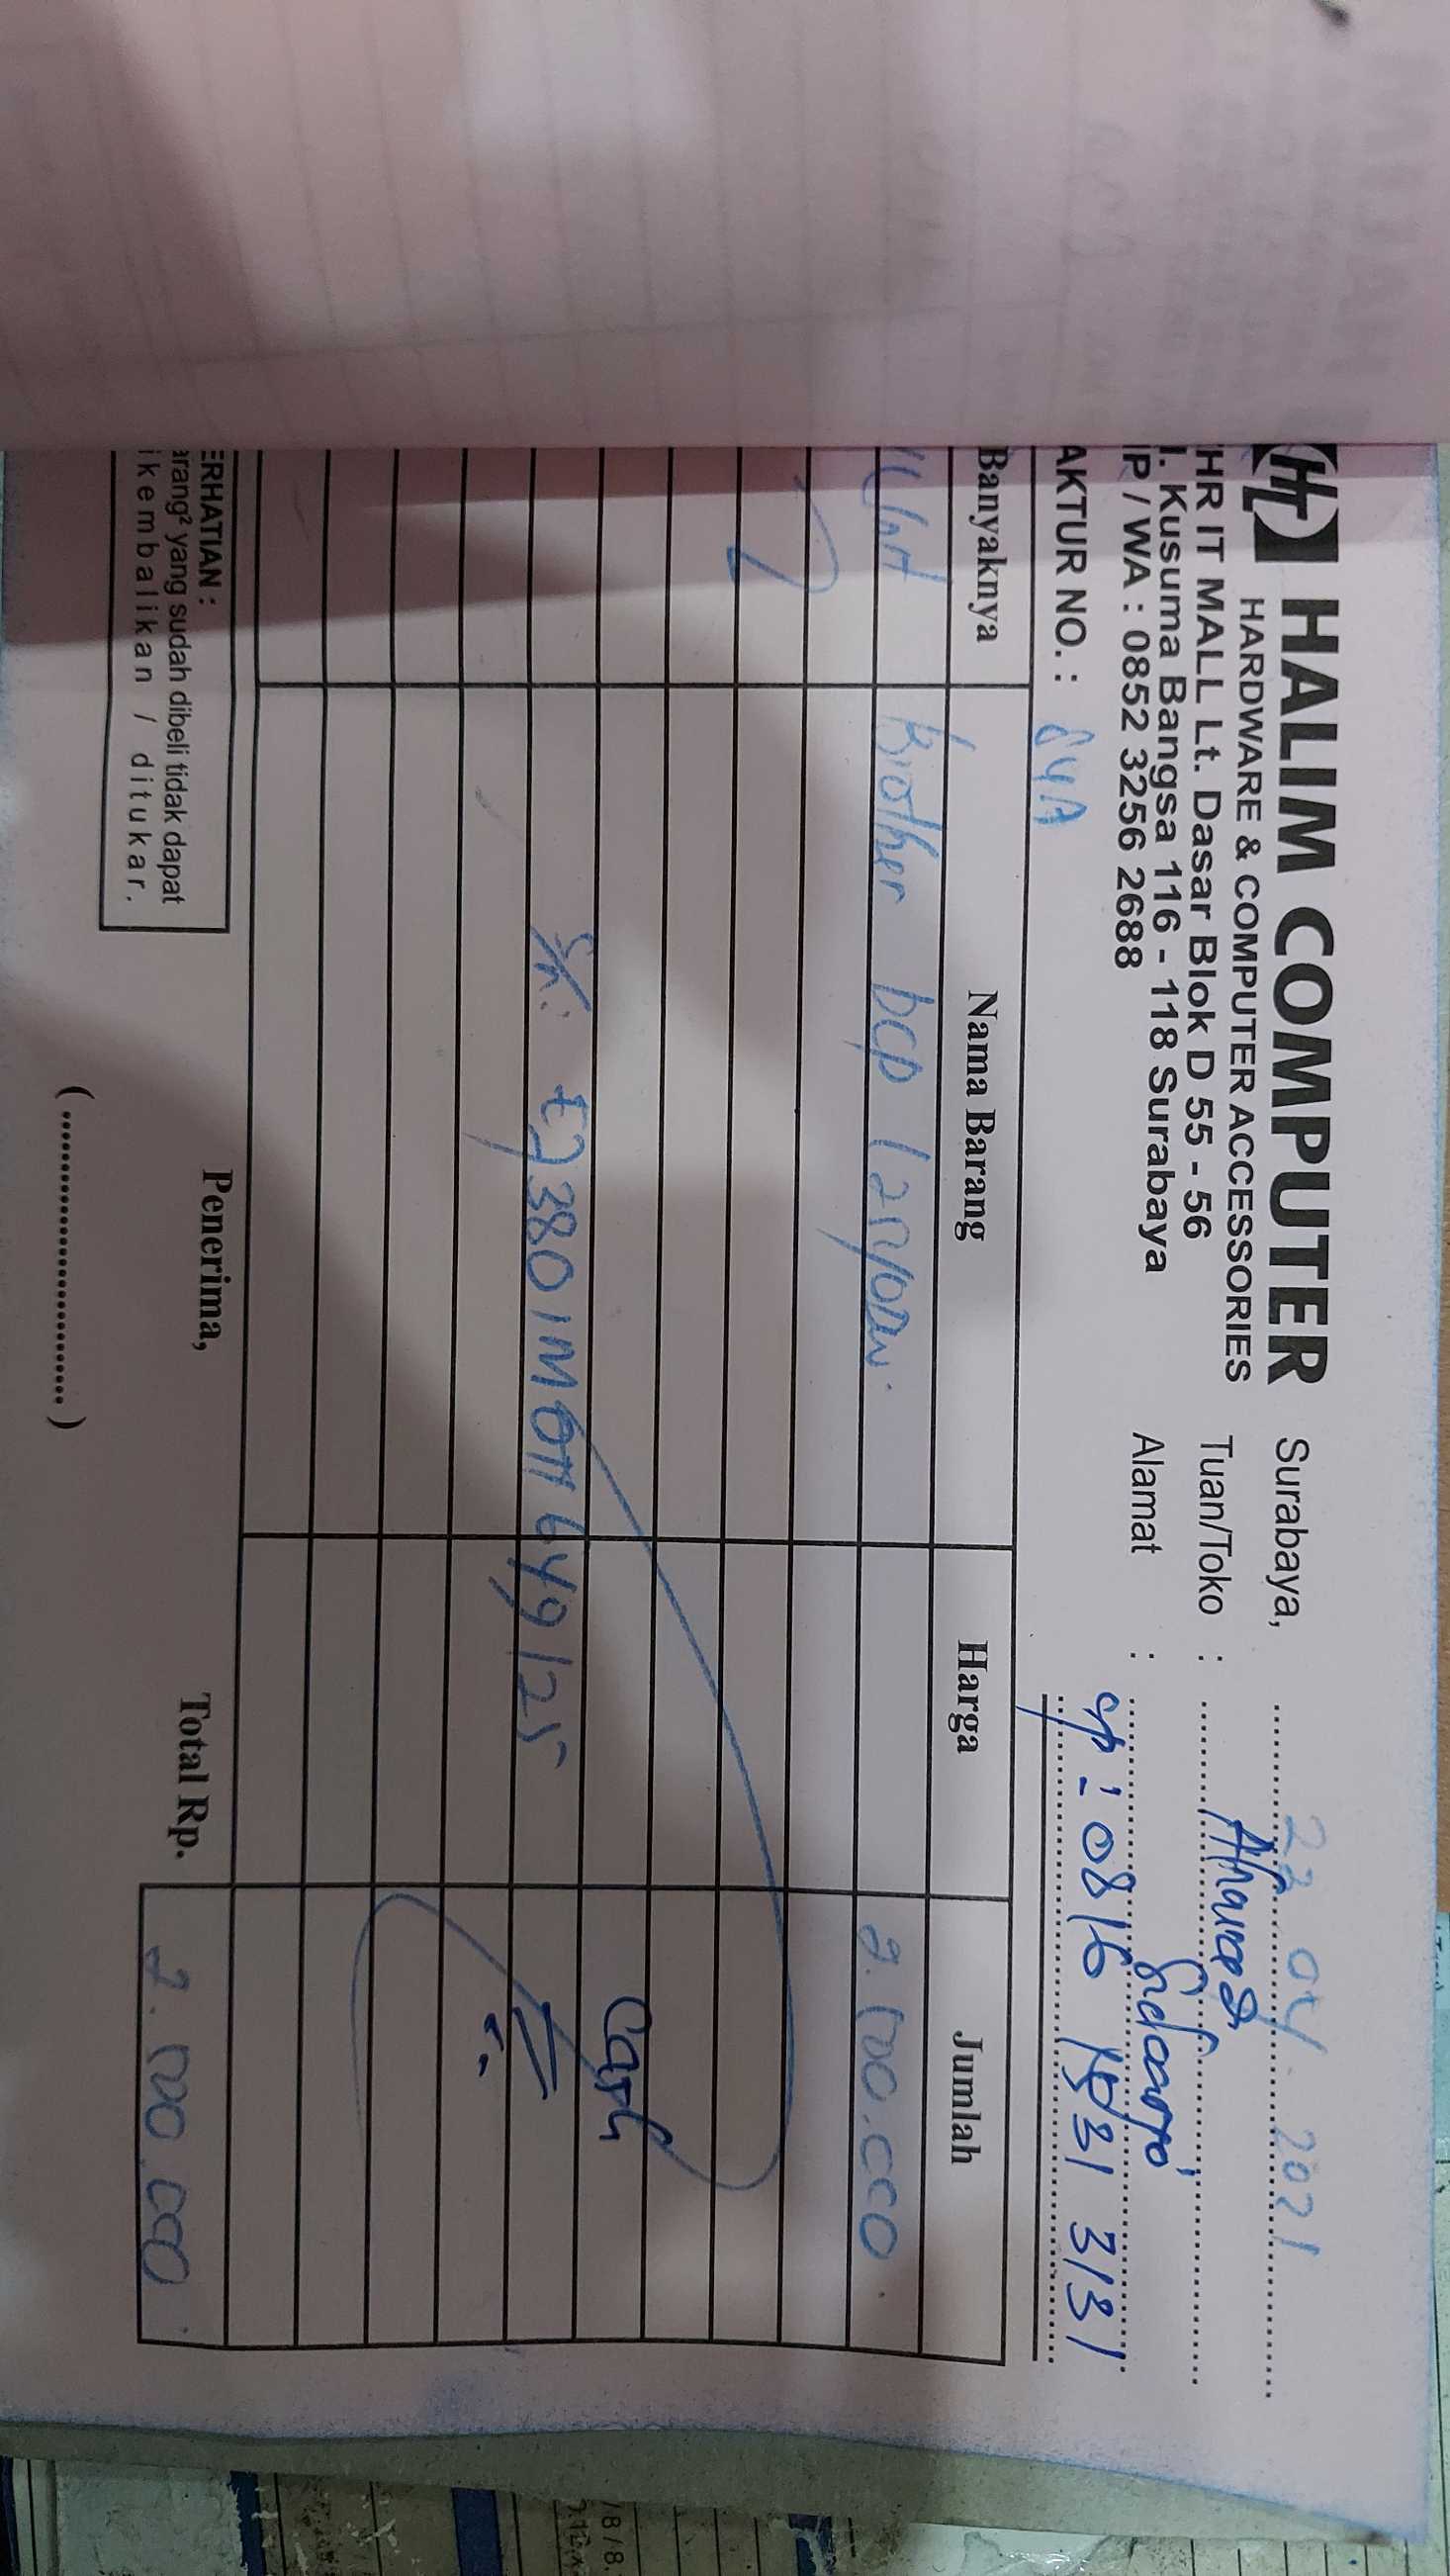 HALIM COMPUTER
HARDWARE & COMPUTER ACCESSORIES
HR IT MALL Lt. Dasar Blok D 55 - 56
l. Kusuma Bangsa 116 - 118 Surabaya
IP / WA : 0852 3256 2688
AKTUR NO. : 64A
Surabaya, 22 04. 2021
Tuan/Toko : Ahmad
Sidoarjo
Alamat :
cp : 0816 1531 3131
Banyaknya Nama Barang Harga Jumlah
1 Unit Brother DCP L2540DW. 2.100.000.
Cash
SN: E73801M0H649125
ERHATIAN :
arang² yang sudah dibeli tidak dapat
ikembalikan / ditukar.
Penerima,
(........................)
Total Rp. 2.100.000.